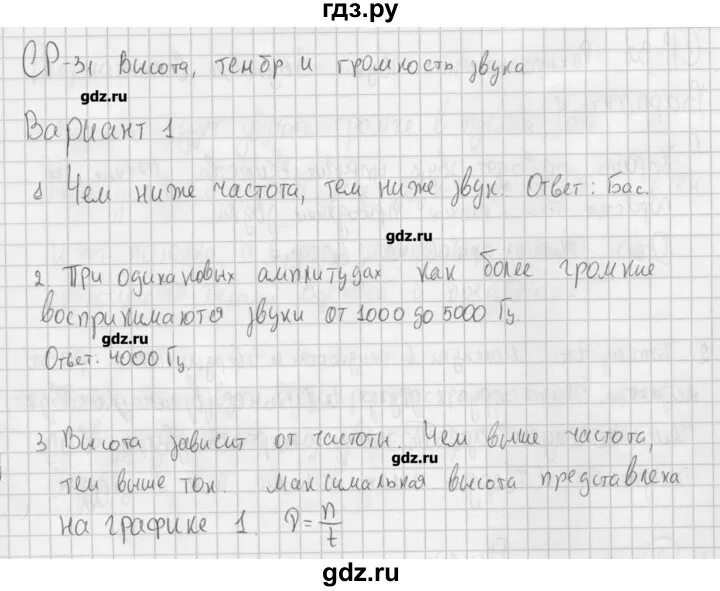 гдз.ру
СР-31 Высота, тембр и громкость звука
gdz.ru
Вариант 1
1 Чем ниже частота, тем ниже звук. Ответ: Бас.
gdz.ru
2 При одинаковых амплитудах как более громкие
воспринимаются звуки от 1000 до 5000 Гц.
gdz.ru
Ответ: 4000 Гц.
3 Высота зависит от частоты. Чем выше частота,
gdz.ru
тем выше тон. Максимальная высота представлена
на графике 1. ν = n/t
gdz.ru